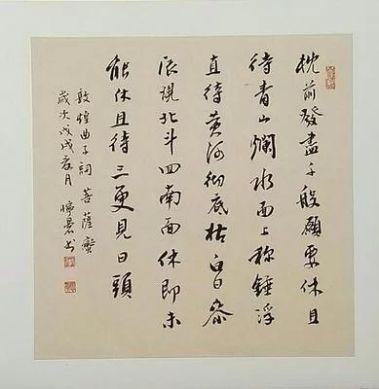 枕前發盡千般願要休且
待青山爛水面上称錘浮
直待黃河彻底枯白日参
辰現北斗回南面休即未
能休且待三更見日頭
敦煌曲子詞菩薩蠻
歲次戊戌春月书